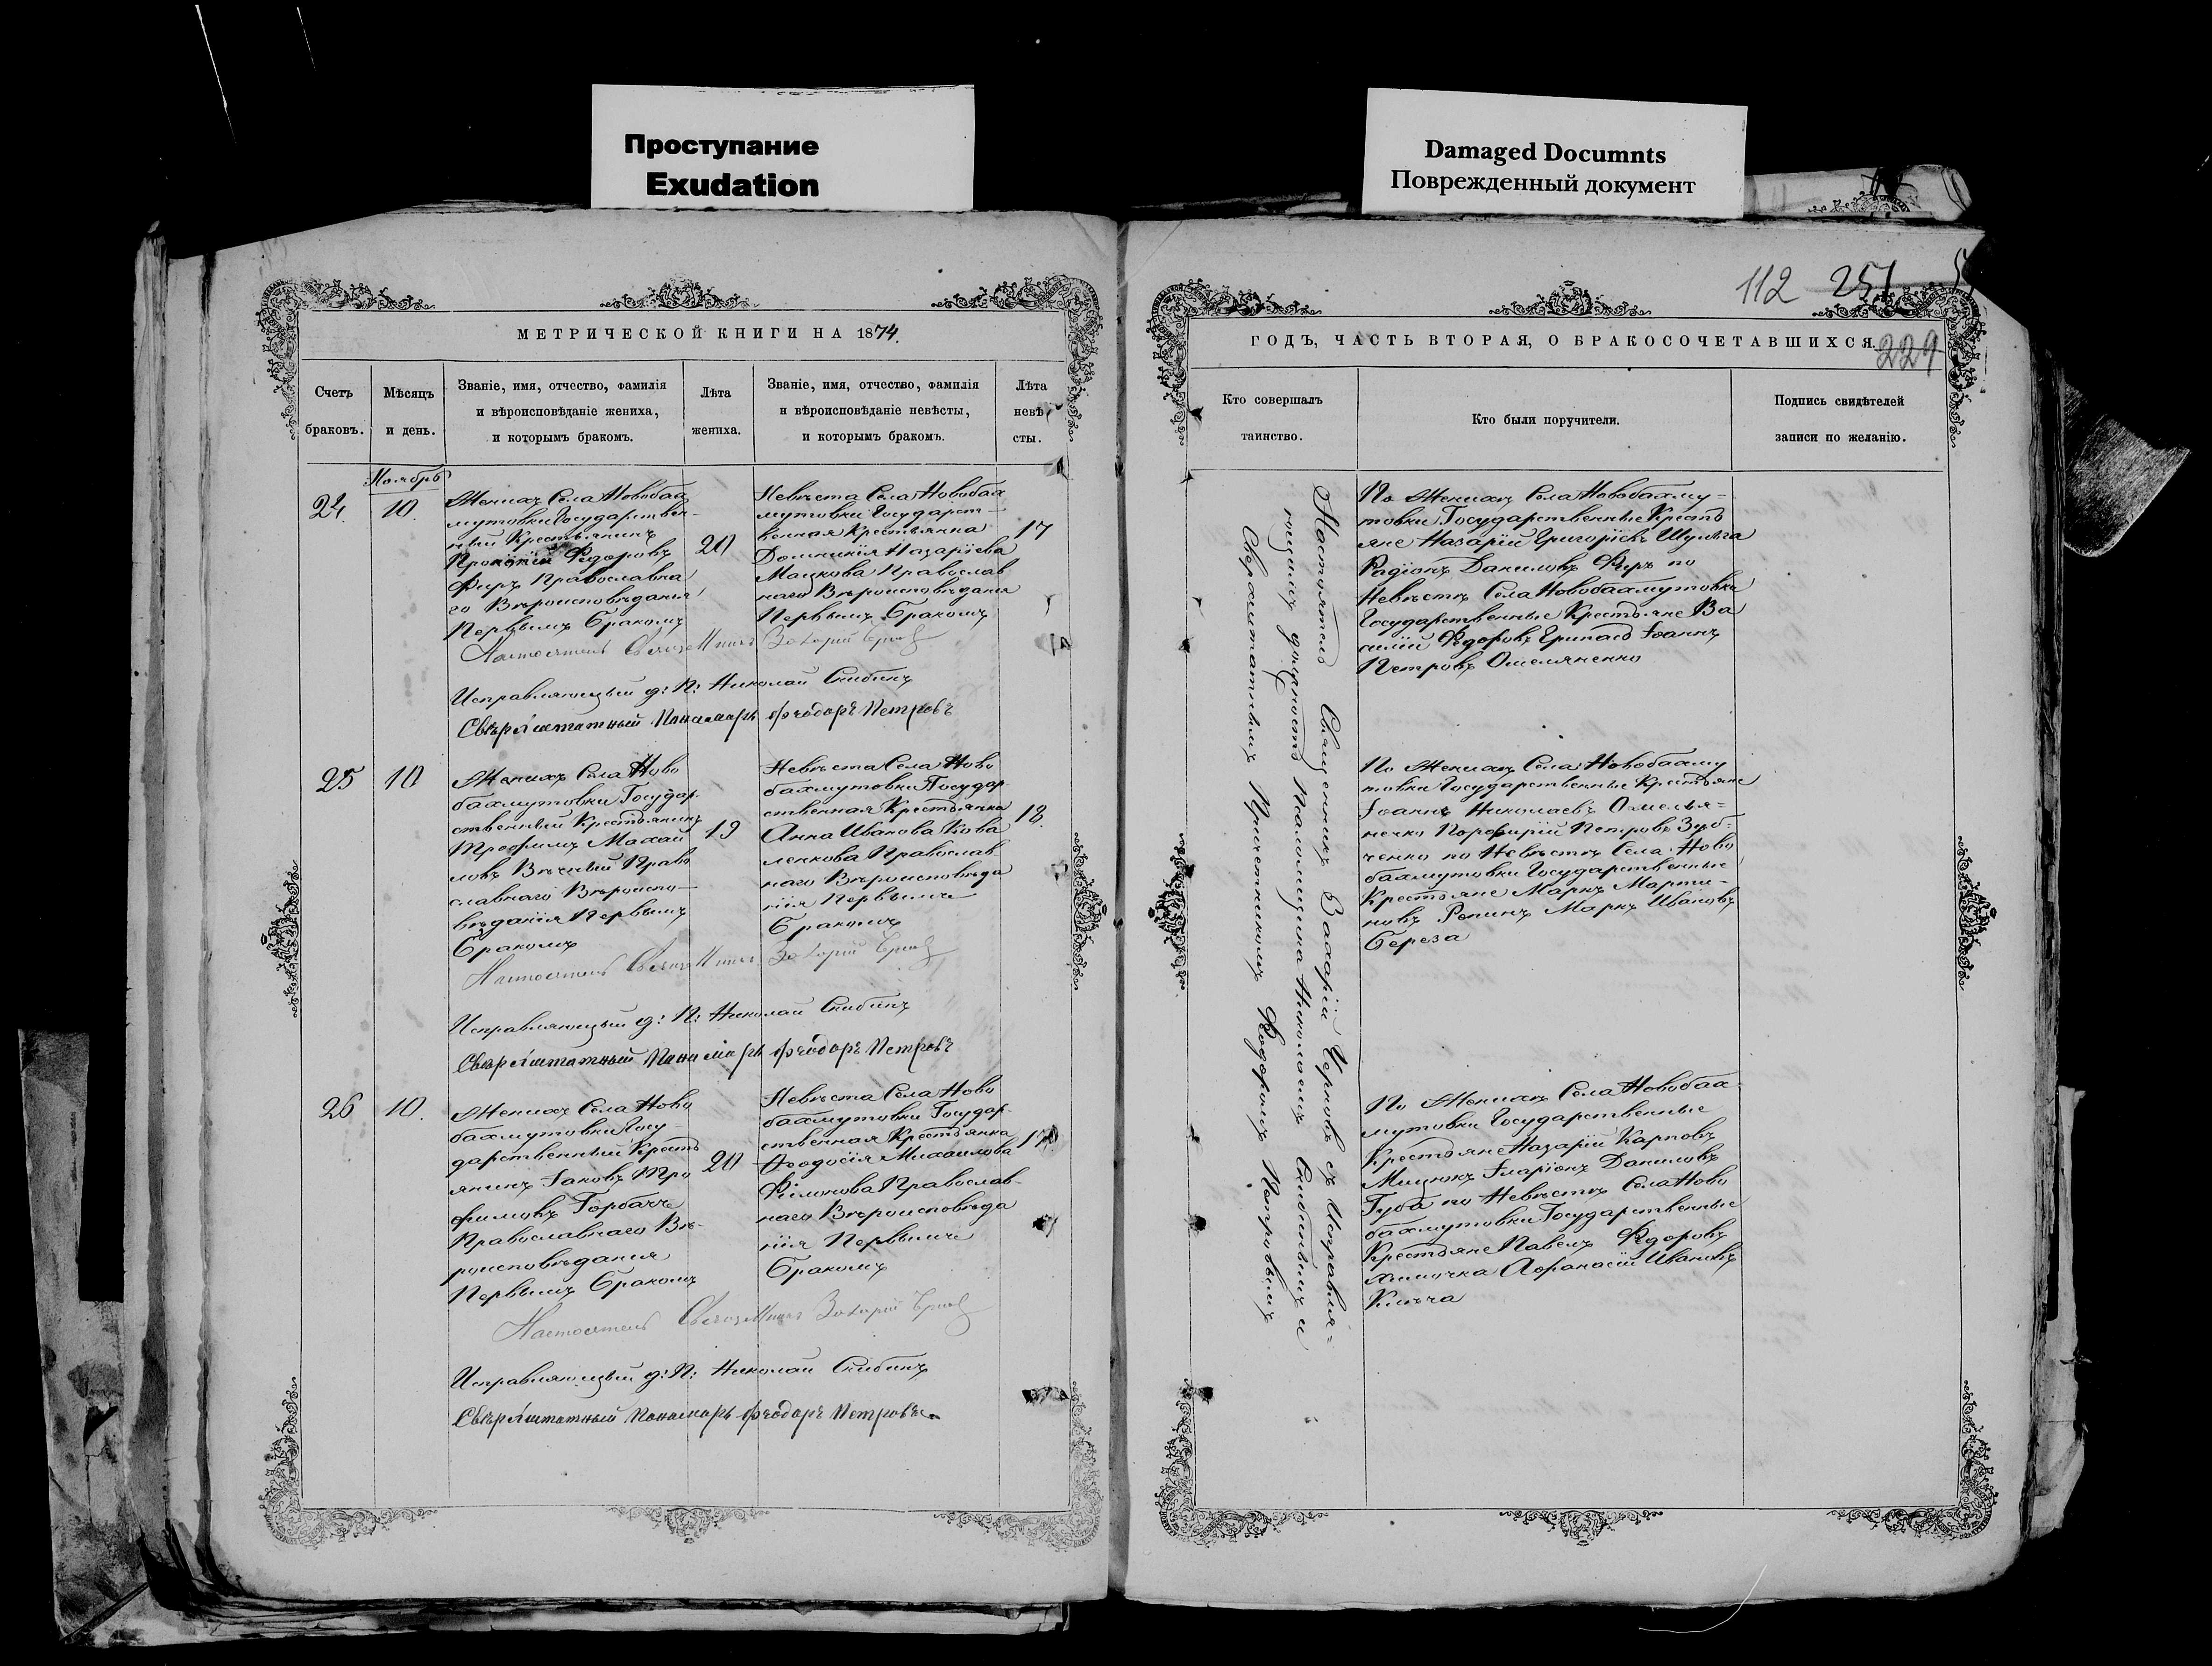 Проступание
Exudation
Damaged Documnts
Поврежденный документ
МЕТРИЧЕСКОЙ КНИГИ НА 1874.
Счетъ
браковъ.
Мѣсяцъ
и день.
Званіе, имя, отчество, фамилія
и вѣроисповѣданіе жениха,
и которымъ бракомъ.
Лѣта
жениха.
Званіе, имя, отчество, фамилія
и вѣроисповѣданіе невѣсты,
и которымъ бракомъ.
Лѣта
невѣ
сты.
Ноябрь
24.
10.
Женихъ Села Новобах
мутовки Государствен-
ный Крестьянинъ
Федоровъ
Фиръ Православна
го Вѣроисповѣдания
Первымъ Бракомъ
20
Невѣста Села Новобах
мутовки Государст-
венная Крестьянка
Домникія Назаріева
Мацкова Православ
наго Вѣроисповѣдания
Первымъ Бракомъ
17
Настоятель Священникъ Захарій
Исправляющый д: П: Николай Скибинъ
Сверхштатный Панамарь Феодоръ Петровъ
25
10
Женихъ Села Ново
бахмутовки Государ-
ственный Крестьянинъ
Трофимъ Михаи
ловъ Православ
славнаго Вѣроиспо-
вѣданія Первымъ
Бракомъ
19
Невѣста Села Ново
бахмутовки Государ-
ственная Крестьянка
Анна Иванова Кова
ленкова Православ-
наго Вѣроисповѣда
нія Первымъ
Бракомъ
18.
Настоятель Священникъ Захарій
Исправляющый д: П: Николай Скибинъ
Сверхштатный Панамарь Феодоръ Петровъ
26
10.
Женихъ Села Ново
бахмутовки Госу-
дарственный Кресть
янинъ Іаковъ Тро
фимовъ Горбачъ
Православнаго Вѣ-
роисповѣдания
Первымъ Бракомъ
20
Невѣста Села Ново
бахмутовки Государ-
ственная Крестьянка
Феодосія Михаилова
Филонова Православ-
наго Вѣроисповѣда
нія Первымъ
Бракомъ
Настоятель Священникъ Захарій
Исправляющый д: П: Николай Скибинъ
Сверхштатный Панамарь Феодоръ Петровъ
112 251
ГОДЪ, ЧАСТЬ ВТОРАЯ, О БРАКОСОЧЕТАВШИХСЯ.
229
Кто совершалъ
таинство.
Кто были поручители.
Подпись свидѣтелей
записи по желанію.
Настоятель Священникъ Захарій Черновъ съ Исправля=
ющимъ должность Псаломщика Николаемъ Скибинымъ и
Сверхштатнымъ Причетникомъ Федоромъ Петровымъ
По Женихѣ Села Новобахму-
товки Государственные Кресть
яне Назарій Григоріевъ Шульга
Радіонъ Даниловъ Фиръ по
Невѣстѣ Села Новобахмутовки
Государственные Крестьяне Ва
силій Федоровъ Грипасъ Іоаннъ
Петровъ Омеляненко
По Женихѣ Села Новобахму
товки Государственные Крестьяне
Іоаннъ Николаевъ Омелья=
ненко Порфирій Петровъ Зуб-
ченко по Невѣстѣ Села Ново
бахмутовки Государственные
Крестьяне Маркъ Марти-
новъ Репинъ Маркъ Ивановъ
Береза
По Женихѣ Села Новобах-
мутовки Государственные
Крестьяне Назарій Карповъ
Мицюкъ Иларіонъ Даниловъ
Губа по Невѣстѣ Села Ново
бахмутовки Государственные
Крестьяне Павелъ Федоровъ
Афанасій Ивановъ